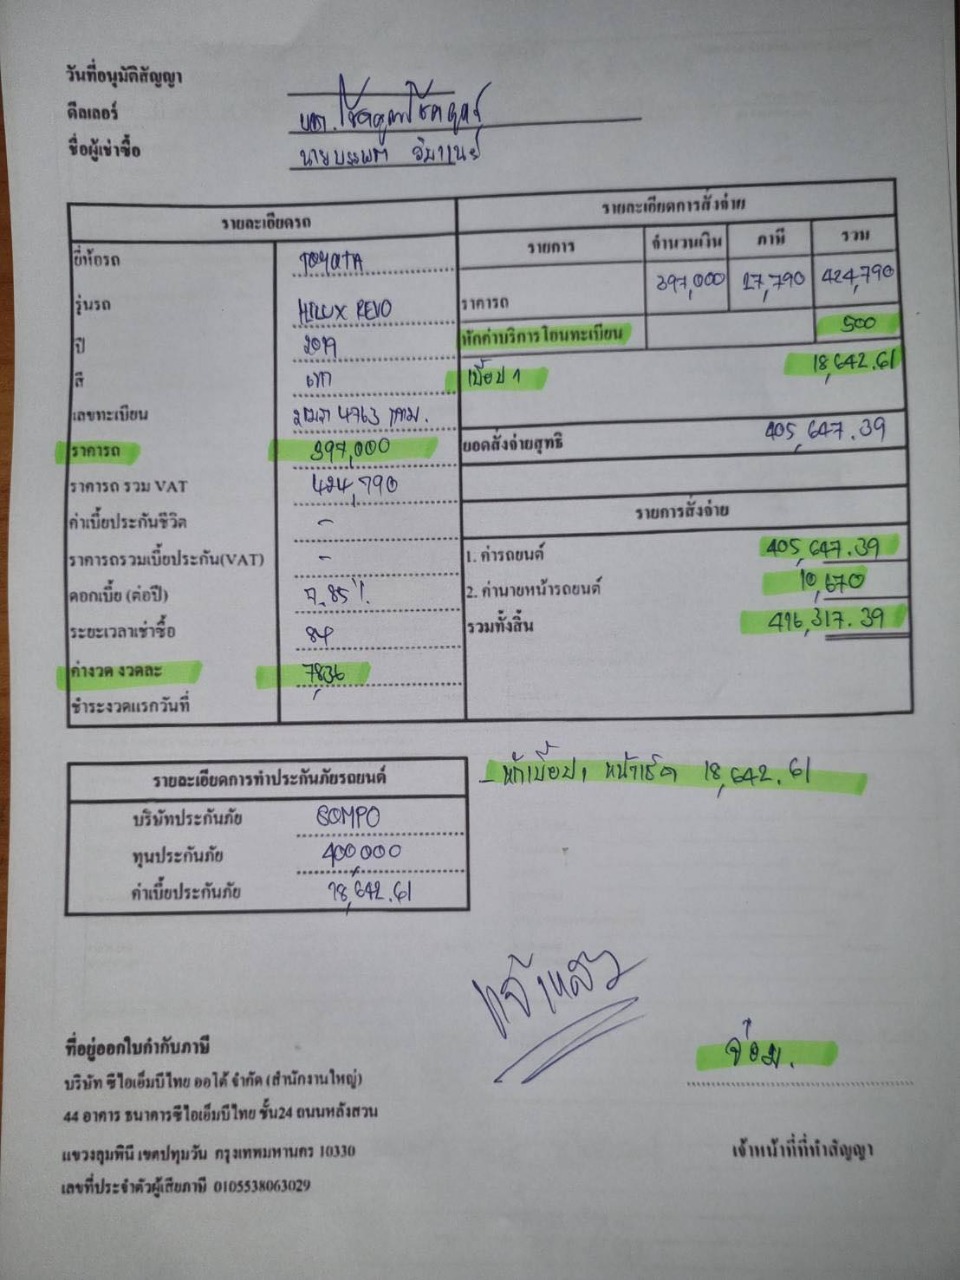 วันที่อนุมัติสัญญา
ดีลเลอร์ บจก. โชคคูณโชคคูณ
ชื่อผู้เช่าซื้อ นายบรรพต
รายละเอียดรถ
ยี่ห้อรถ TOYOTA
รุ่นรถ HILUX REVO
ปี 2019
สี เทา
เลขทะเบียน 4763 กทม.
ราคารถ 397,000
ราคารถ รวม VAT 424,790
ค่าเบี้ยประกันชีวิต -
ราคารถรวมเบี้ยประกัน(VAT) -
ดอกเบี้ย (ต่อปี) 7.85%
ระยะเวลาเช่าซื้อ 84
ค่างวด งวดละ 7,836
ชำระงวดแรกวันที่
รายละเอียดการสั่งจ่าย
รายการ จำนวนเงิน ภาษี รวม
ราคารถ 397,000 27,790 424,790
หักค่าบริการโอนทะเบียน 500
เบี้ยป 1 18,642.61
ยอดสั่งจ่ายสุทธิ 405,647.39
รายการสั่งจ่าย
1. ค่ารถยนต์ 405,647.39
2. ค่านายหน้ารถยนต์ 10,670
รวมทั้งสิ้น 416,317.39
- หักเบี้ยป 1 หน้าเช็ค 18,642.61
รายละเอียดการทำประกันภัยรถยนต์
บริษัทประกันภัย SOMPO
ทุนประกันภัย 400,000
ค่าเบี้ยประกันภัย 18,642.61
แจ้งแล้ว
จ๋อม.
เจ้าหน้าที่ที่ทำสัญญา
ที่อยู่ออกใบกำกับภาษี
บริษัท ซีไอเอ็มบีไทย ออโต้ จำกัด (สำนักงานใหญ่)
44 อาคาร ธนาคารซีไอเอ็มบีไทย ชั้น24 ถนนหลังสวน
แขวงลุมพินี เขตปทุมวัน กรุงเทพมหานคร 10330
เลขที่ประจำตัวผู้เสียภาษี 0105538063029